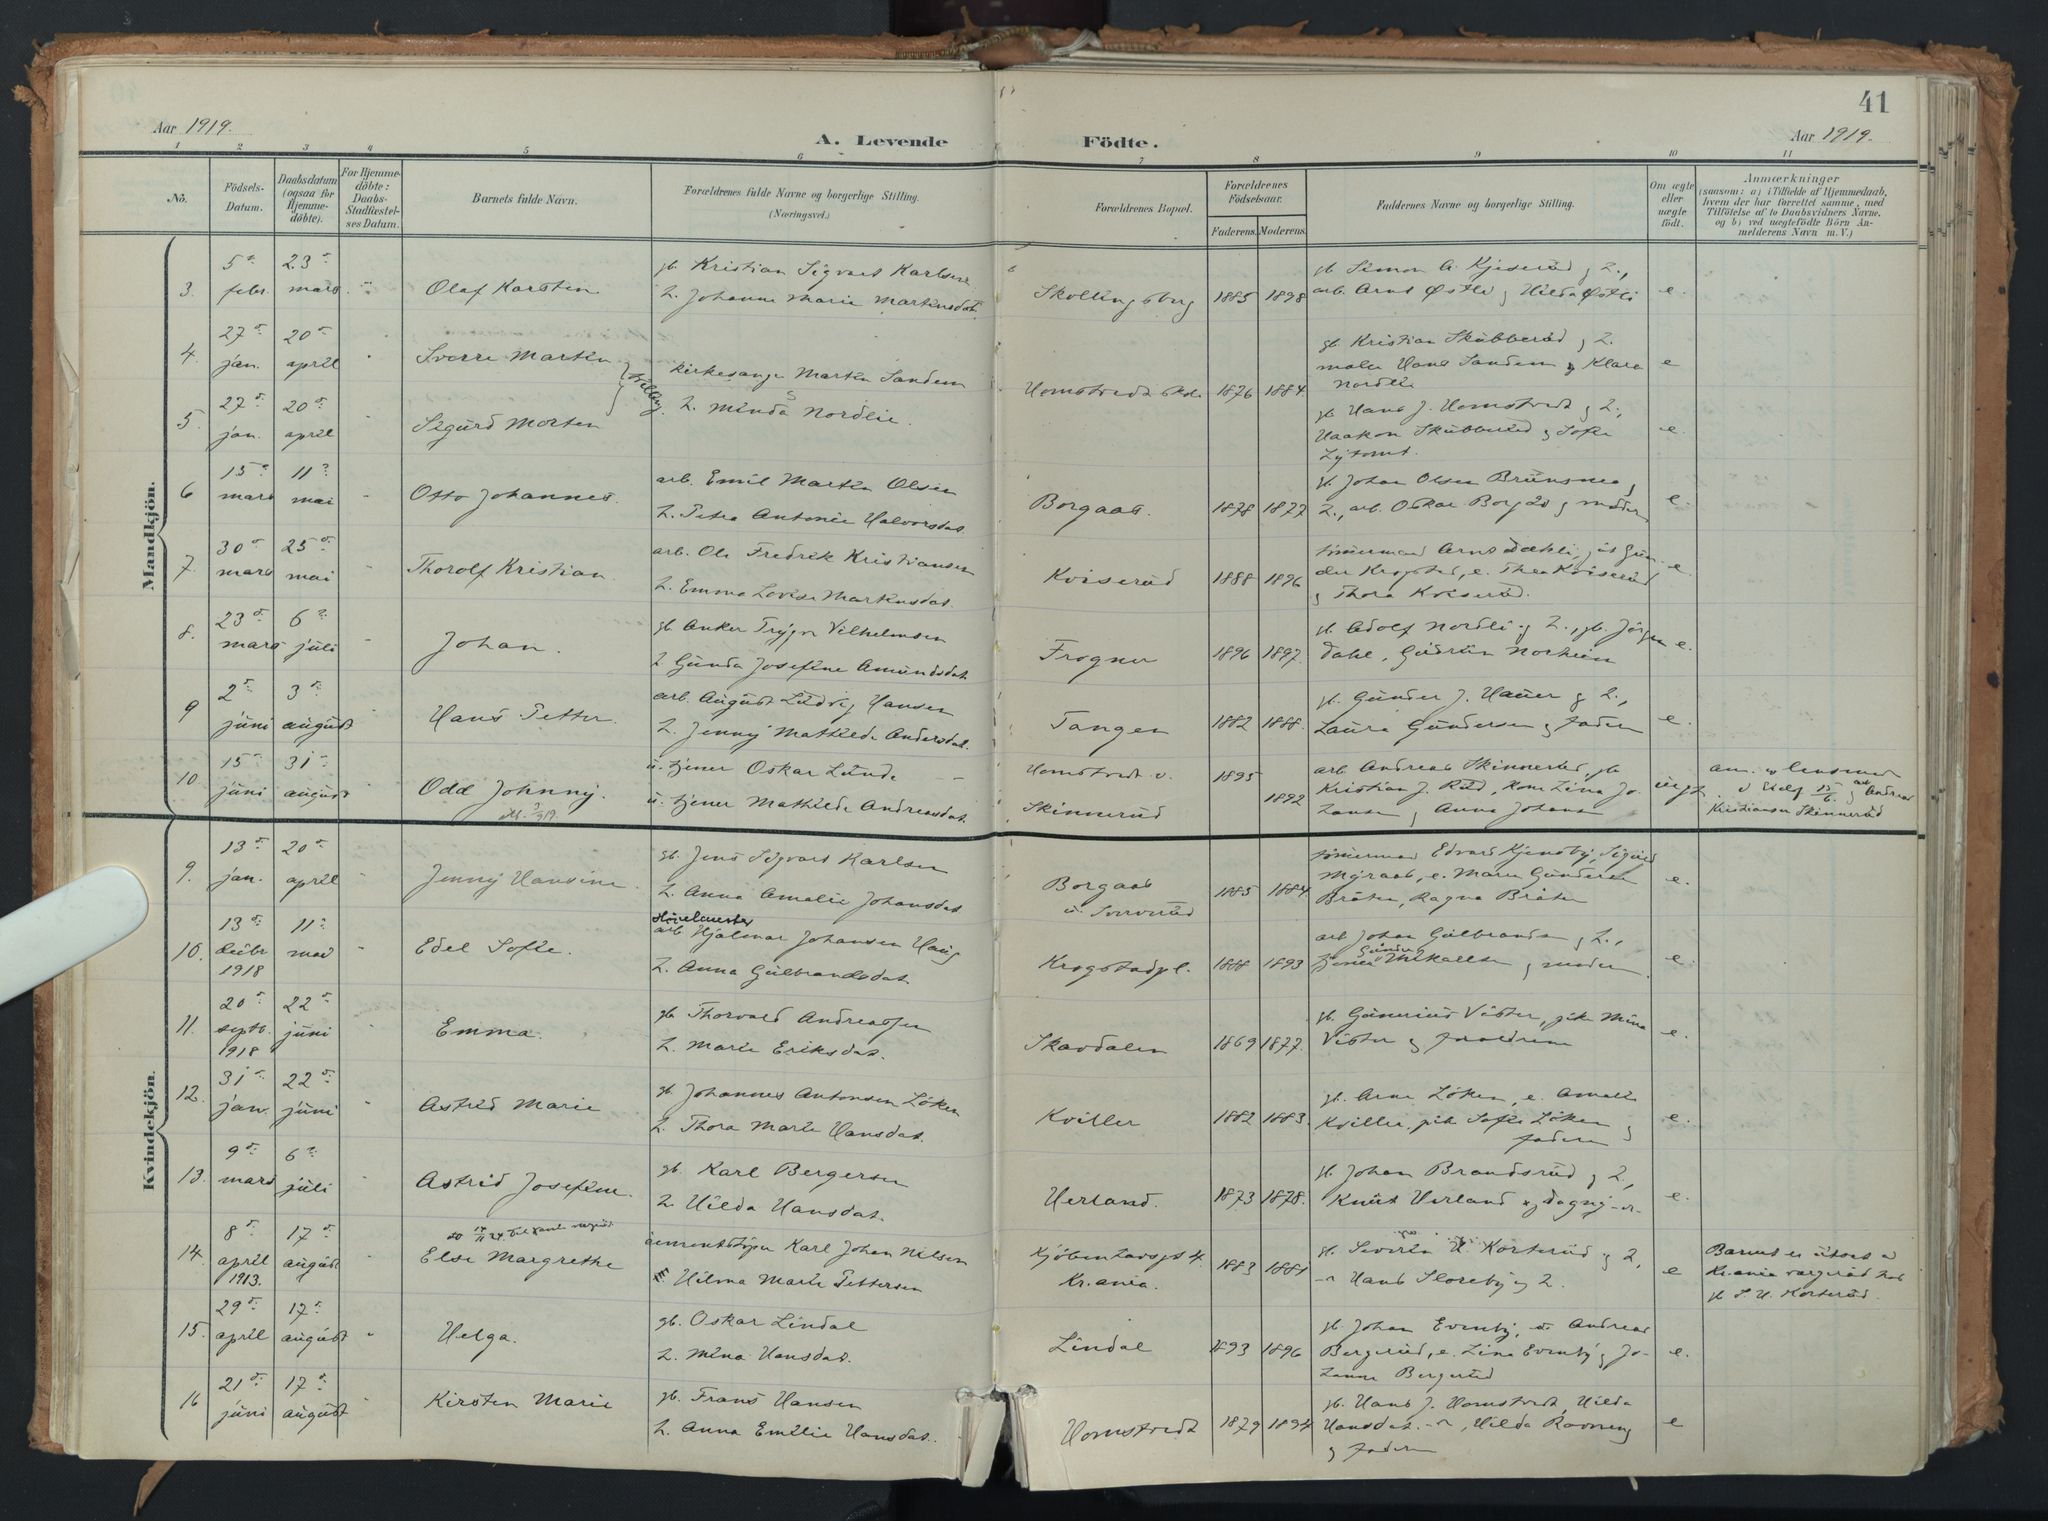 41
Aar 1919.
A. Levende Födte.
Aar 1919.
1 2 3 4 5 6 7 8 9 10 11
No.
Födsels-Datum.
Daabsdatum (ogsaa for Hjemme-döbte).
For Hjemme-döbte: Daabs-Stadfæstel-ses Datum.
Barnets fulde Navn.
Forældrenes fulde Navne og borgerlige Stilling.
(Næringsvei.)
Forældrenes Bopæl.
Forældrenes Födselsaar.
Faderens. Moderens.
Faddernes Navne og borgerlige Stilling.
Om ægte eller uægte födt.
Anmærkninger
(saasom: a) i Tilfælde af Hjemmedaab,
hvem der har forrettet samme, med
Tilföielse af to Daabsvidners Navne.
og b) ved uægtefödte Börn An-
melderens Navn m. V.)
Mandkjön.
3. 5 febr. 23 mars Olaf Karsten
gb. Kristian Sigvart Karlsen
H. Johanne Marie Martinsdat.
Skollingsberg 1885 1898
gb. Simon Kjeserud og H.,
arb. Arnt Østli og Hilda Østli e.
4. 27 jan. 20 april Sverre Martin
kirkesanger Martin Sandem
H. Minda Nordlie.
Homstvedt skole 1876 1884.
gb. Kristian Skubberud og H.
maler Hans Sandem og Klara
Nordlie e
5. 27 jan. 20 april Sigurd Morten
gb. Hans J. Homstvedt og H.,
Haakon Skubberud og Sofie
e.
6 15 mars 11 mai Otto Johannes.
arb. Emil Martin Olsen
H. Petra Antonie Halvorsdat.
Borgaas. 1878 1877
gb. Johan Olsen
H., arb. Oskar og moderen e.
7. 30 mars 25 mai Thorolf Kristian.
arb. Ole Fredrik Kristiansen
H. Emma Lovise Markusdat.
Kviserud 1888 1896
tömmermand Arnt Dæhli,
Krogstad, e. Thea Kviserud
og Thora Kviserud. e.
8. 23 mars 6 juli Johan.
gb. Anker Trygve Vilhelmsen
H. Gunda Josefine Amundsdat.
Frogner 1896 1897.
gb. Adolf Nordli og H., gb. Jörgen
Dahl, Gudrun Norheim e.
9 2 juni 3 august Hans Petter.
arb. August Ludvig Hansen
H. Jenny Mathilde Andersdat.
Tangen 1882 1888.
gb. Gunder J. Hauer og H.,
Laura Gundersen og faderen e.
10 15 juni 31 august Odd Johnny.
u. tjener Oskar Lunde
u. tjener Mathilde Andreasdat.
Homstvedt o.
Skinnerud 1895 1892
arb. Andreas Skinnerud, gb.
Kristian J. Rud, Kone Lina Jo-
hansen og Anna Johansen
Kristiansen Skinnerud
Kvindekjön.
9. 13 jan. 20 april Jenny Hansine.
gb. Jens Sigvart Karlsen
H. Anna Amalie Johansdat.
Borgaas 1885 1884.
tömmermand Edvard Kjensby, Sigurd
Myraas, e. Maren Gundersen
Bråten, Ragna Bråten e.
10. 13 decbr. 1918 11 mai Edel Sofie.
Hövelmester
arb Hjalmar Johansen Haug
H. Anna Gulbrandsdat.
Krogstadpl. 1888 1893
arb Johan Gulbrandsen og H.,
tjener Mikalsen og moderen. e.
11. 20 septb. 1918 22 juni Emma.
gb. Thorvald Andreassen
H. Marie Eriksdat.
Skavdalen 1869 1877.
gb. Gunerius Vister, pike Mina
Vister og forældrene e.
12. 31 jan. 22 juni Astrid Marie
gb. Johannes Antonsen Löken
H. Thora Marie Hansdat.
Kviller 1882 1883.
gb. Arne Löken, e. Amalie
Kviller, pike Sofie Löken og
faderen e.
13. 9 mars 6 juli Astrid Josefine.
gb. Karl Bergersen
H. Hilda Hansdat.
Herland. 1873 1878.
gb. Johan Brandsrud og H.,
Knut Herland og Dagny e.
14. 8 april 1913. 17 august Else Margrethe
cementstöper Karl Johan Nilsen
Hilma Marie Pettersen
Kr.ania. 1883 1881
gb. Severin H. Korterud og H.,
Hans Sloreby og H. e
Barnet er utsat a
Kr.ania
gb S. H. Korterud.
15. 29 april 17 august Helga.
gb. Oskar Lindal
H. Mina Hansdat.
Lindal 1893 1896
gb. Johan Evenby, Andreas
Bergerud, e. Lina Evenby og Jo-
hanne Bergerud e.
16 21 juni 17 august Kirsten Marie
gb. Frans Hansen
H. Anna Emilie Hansdat.
Homstvedt 1879 1894
gb. Hans J. Homstvedt, Hilda
Hansdat., Hilda Ravneng
og faderen e